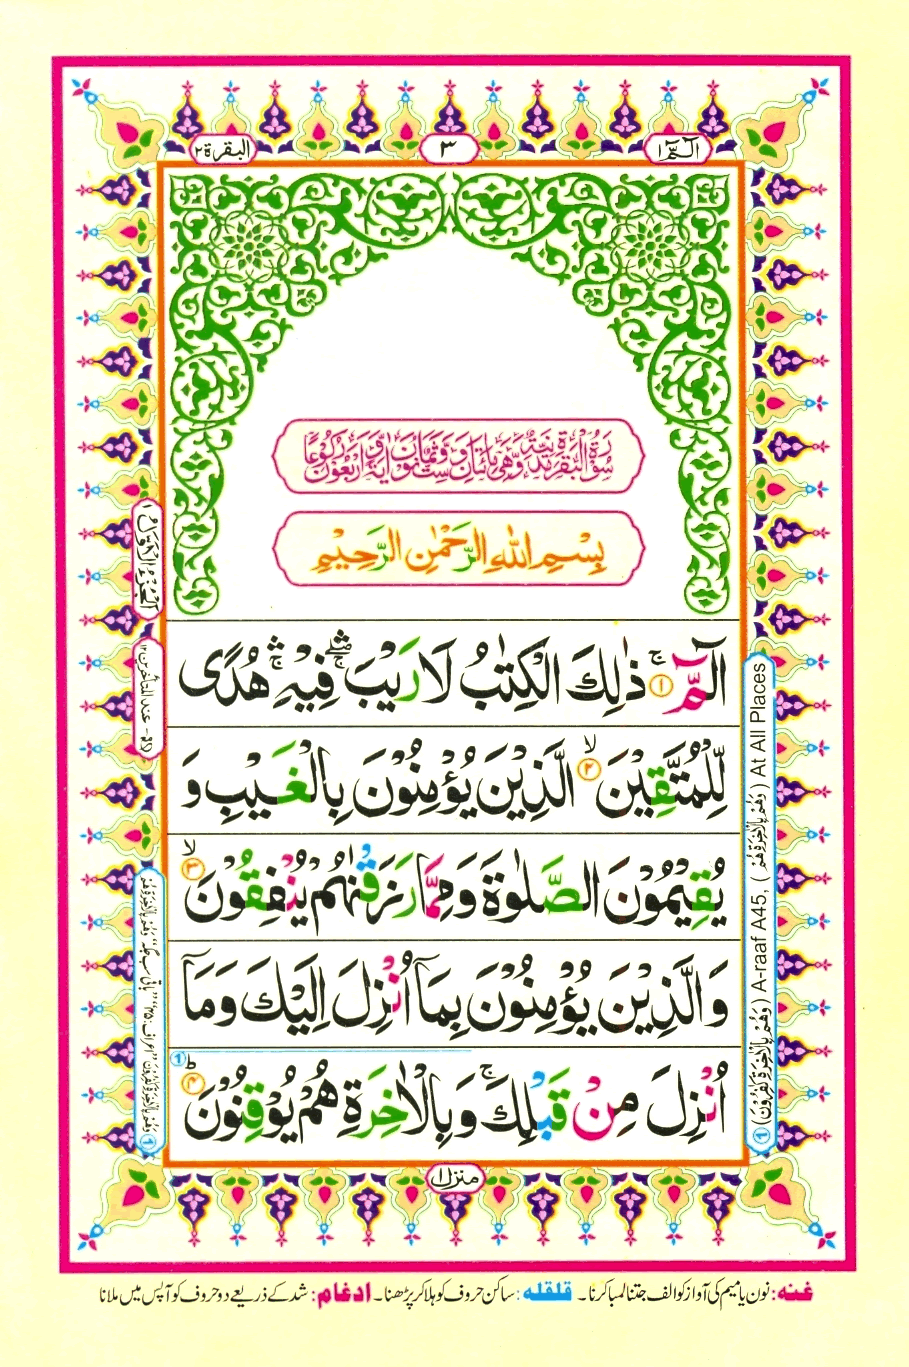 الٓمّٓ ۱
۳
البقرة ۲
سُوْرَةُ الْبَقَرَةِ مَدَنِيَّةٌ وَّهِيَ مِائَتَانِ وَسِتٌّ وَّثَمَانُوْنَ اٰيَةً وَّاَرْبَعُوْنَ رُكُوْعًا
بِسْمِ اللّٰهِ الرَّحْمٰنِ الرَّحِيْمِ
الٓمّٓ ۚ ۱ ذٰلِكَ الْكِتٰبُ لَا رَيْبَ ۛۖۚ فِيْهِ ۛۚ هُدًى
لِّلْمُتَّقِيْنَ ۙ ۲ الَّذِيْنَ يُؤْمِنُوْنَ بِالْغَيْبِ وَ
يُقِيْمُوْنَ الصَّلٰوةَ وَمِمَّا رَزَقْنٰهُمْ يُنْفِقُوْنَ ۙ ۳
وَالَّذِيْنَ يُؤْمِنُوْنَ بِمَآ اُنْزِلَ اِلَيْكَ وَمَآ
اُنْزِلَ مِنْ قَبْلِكَ ۚ وَبِالْاٰخِرَةِ هُمْ يُوْقِنُوْنَ ؕ ۴
۱
منزل ۱
(۱) (وَهُمْ بِالْاٰخِرَةِ كٰفِرُوْنَ) A-raaf A45, (وَهُمْ بِالْاٰخِرَةِ هُمْ) At All Places
غنه: نون یا میم کی آواز کو الف جتنا لمبا کرنا۔ قلقله: ساکن حروف کو ہلا کر پڑھنا۔ ادغام: شد کے ذریعے دو حروف کو آپس میں ملانا